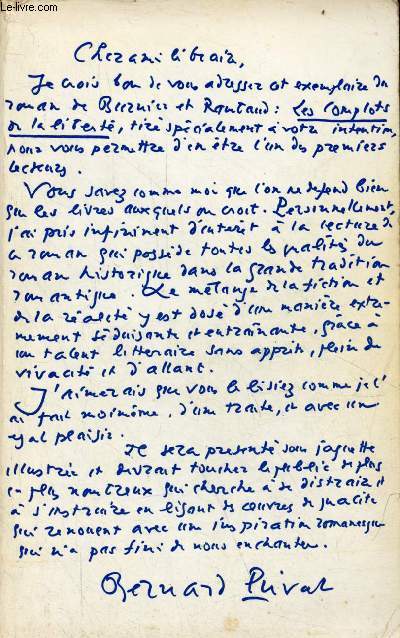 Le-livre.com
Cher ami libraire,
Je crois bon de vous adresser cet exemplaire du
roman de Burnier et Rambaud : Les Complots
de la liberté, tiré spécialement à votre intention,
pour vous permettre d'en être l'un des premiers
lecteurs.
Vous savez comme moi que l'on ne défend bien
que les livres auxquels on croit. Personnellement,
j'ai pris infiniment d'intérêt à la lecture de
ce roman qui possède toutes les qualités du
roman historique dans la grande tradition
romantique. Le mélange de la fiction et
de la réalité y est dosé d'une manière extrê-
mement séduisante et entraînante, grâce à
un talent littéraire sans apprêt, plein de
vivacité et d'allant.
J'aimerais que vous le lisiez comme je l'
ai fait moi même, d'un traite, et avec un
égal plaisir.
Il sera présenté sous jaquette
illustrée et devrait toucher le public de plus
en plus nombreux qui cherche à se distraire et
à s'instruire en lisant des œuvres de qualité
qui renouent avec une inspiration romanesque
qui n'a pas fini de nous enchanter.
Bernard Privat